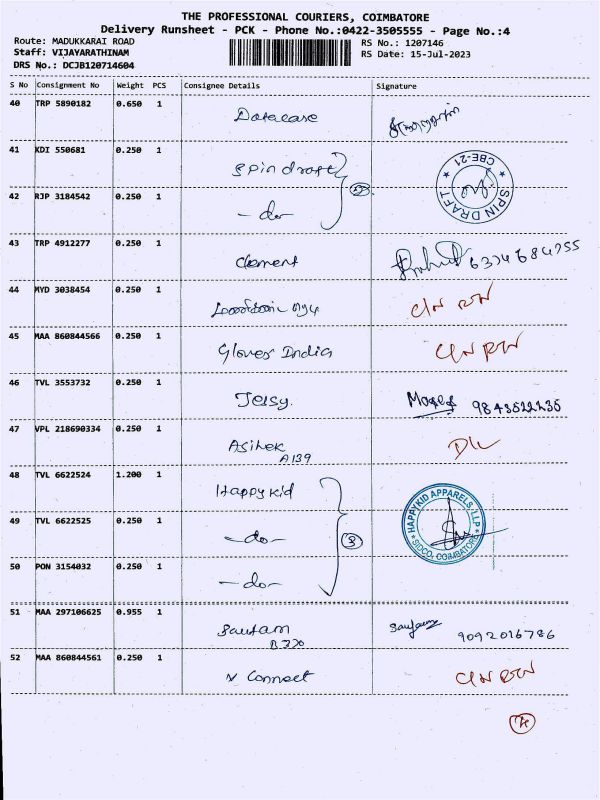 THE PROFESSIONAL COURIERS, COIMBATORE
Delivery Runsheet - PCK - Phone No.:0422-3505555 - Page No.:4
Route: MADUKKARAI ROAD RS No.: 1207146
Staff: VIJAYARATHINAM RS Date: 15-Jul-2023
DRS No.: DCJB120714604
S No Consignment No Weight PCS Consignee Details Signature
40 TRP 5890182 0.650 1 Datacase
41 KDI 550681 0.250 1 Spindraft CBE-21 SPIN DRAFT
42 RJP 3184542 0.250 1 -do-
43 TRP 4912277 0.250 1 Clement
44 MYD 3038454 0.250 1 C/N R/N
45 MAA 860844566 0.250 1 Glover India C/N R/N
46 TVL 3553732 0.250 1 Jersy. 9843522235
47 VPL 218690334 0.250 1 A139 D/L
48 TVL 6622524 1.200 1 Happykid HAPPYKID APPARELS, LLP SIDCO, COIMBATORE
49 TVL 6622525 0.250 1 -do- 3
50 PON 3154032 0.250 1 -do-
51 MAA 297106625 0.955 1 9092016786
52 MAA 860844561 0.250 1 V Connect C/N R/N